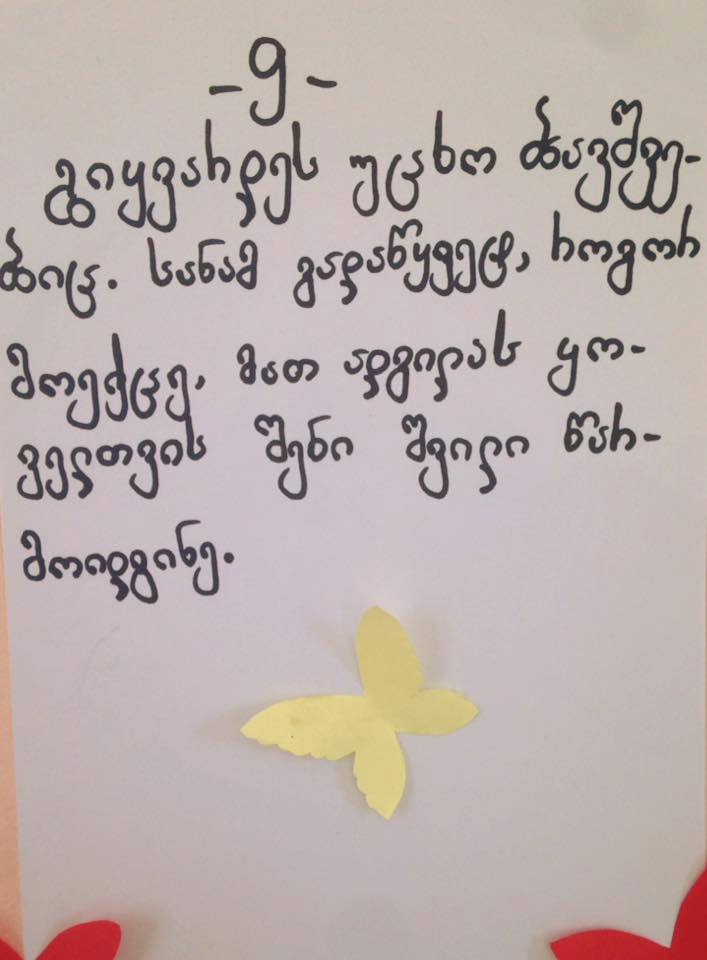 -9-
გიყვარდეს უცხო ბავშვე-
ბიც. სანამ გადაწყვეტ, როგორ
მოექცე, მათ ადგილას ყო-
ველთვის შენი შვილი წარ-
მოიდგინე.